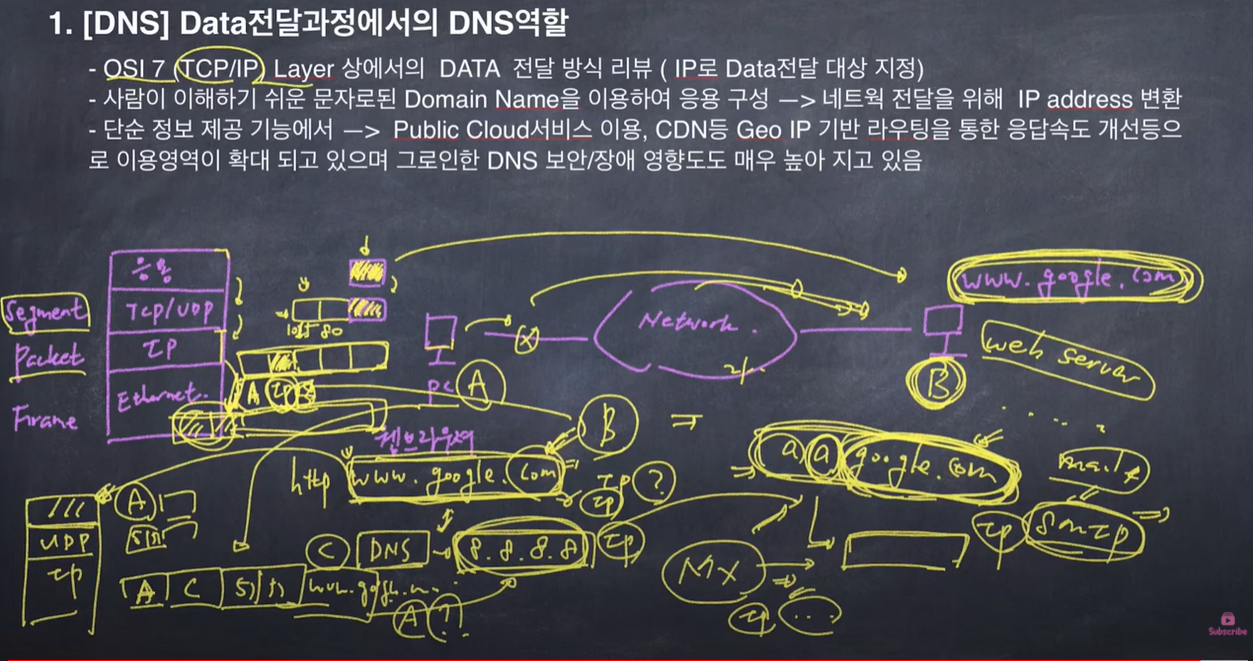 1. [DNS] Data전달과정에서의 DNS역할
- OSI 7 (TCP/IP) Layer 상에서의 DATA 전달 방식 리뷰 ( IP로 Data전달 대상 지정)
- 사람이 이해하기 쉬운 문자로된 Domain Name을 이용하여 응용 구성 —> 네트웍 전달을 위해 IP address 변환
- 단순 정보 제공 기능에서 —> Public Cloud서비스 이용, CDN등 Geo IP 기반 라우팅을 통한 응답속도 개선등으
로 이용영역이 확대 되고 있으며 그로인한 DNS 보안/장애 영향도도 매우 높아 지고 있음
응용
www.google.com
Segment
TCP/UDP
80
Network.
Packet
IP
web server
PC
A
B
Ethernet.
A IP B
Frame
웹브라우져
B
http www.google.com
IP ?
a @ google.com
mail
A
UDP
53
IP
C
DNS
8.8.8.8
IP
MX
IP
SMTP
A C 53
A ?
IP ...
Subscribe